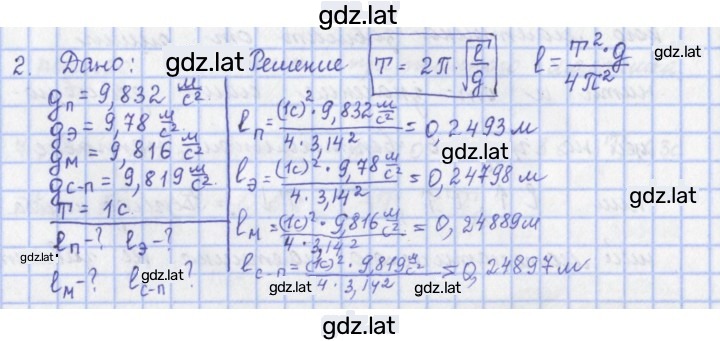 gdz.lat
2. Дано: gdz.lat Решение T = 2π·√(l/g) l = T²·g / 4π² gdz.lat
gп = 9,832 м/с²
gэ = 9,78 м/с²
gм = 9,816 м/с²
gс-п = 9,819 м/с²
T = 1с.
lп-? lэ-?
lм-? lс-п ?
lп = (1с)²·9,832 м/с² / 4·3,14² = 0,2493 м
gdz.lat
lэ = (1с)²·9,78 м/с² / 4·3,14² = 0,24798 м
lм = (1с)²·9,816 м/с² / 4·3,14² = 0,24889м
lс-п = (1с)²·9,819 м/с² / 4·3,14² = 0,24897 м
gdz.lat
gdz.lat
gdz.lat
gdz.lat
gdz.lat
gdz.lat